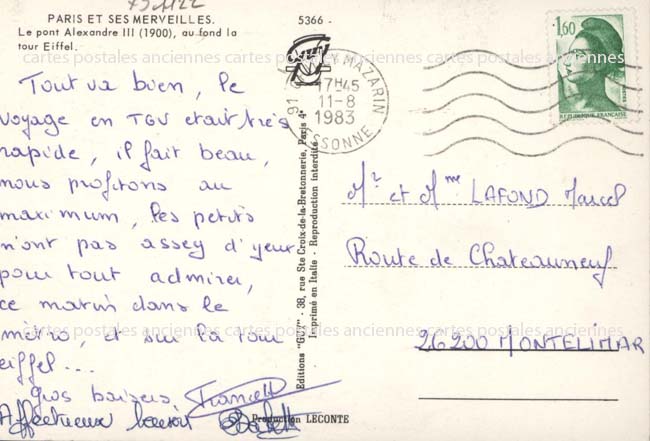 PARIS ET SES MERVEILLES.
Le pont Alexandre III (1900), au fond la
tour Eiffel.
5366 -
Tout va bien, le
voyage en TGV etait très
rapide, il fait beau,
nous profitons au
maximum, les petits
n'ont pas assez d'yeux
pour tout admirer,
ce matin dans le
métro, et sur la tour
eiffel....
gros baisers
Affectueux
Editions "GUY" - 38, rue Ste Croix-de-la-Bretonnerie, Paris 4e
Imprimé en Italie - Reproduction interdite
Production LECONTE
91
MAZARIN
17H45
11-8
1983
ESSONNE
1,60
REPUBLIQUE FRANÇAISE
Mr et Mme LAFOND Marcel
Route de Chateauneuf
26200 MONTELIMAR
cartes postales anciennes cartes postales anciennes cartes postales anciennes
cartes postales anciennes cartes postales anciennes cartes postales anciennes